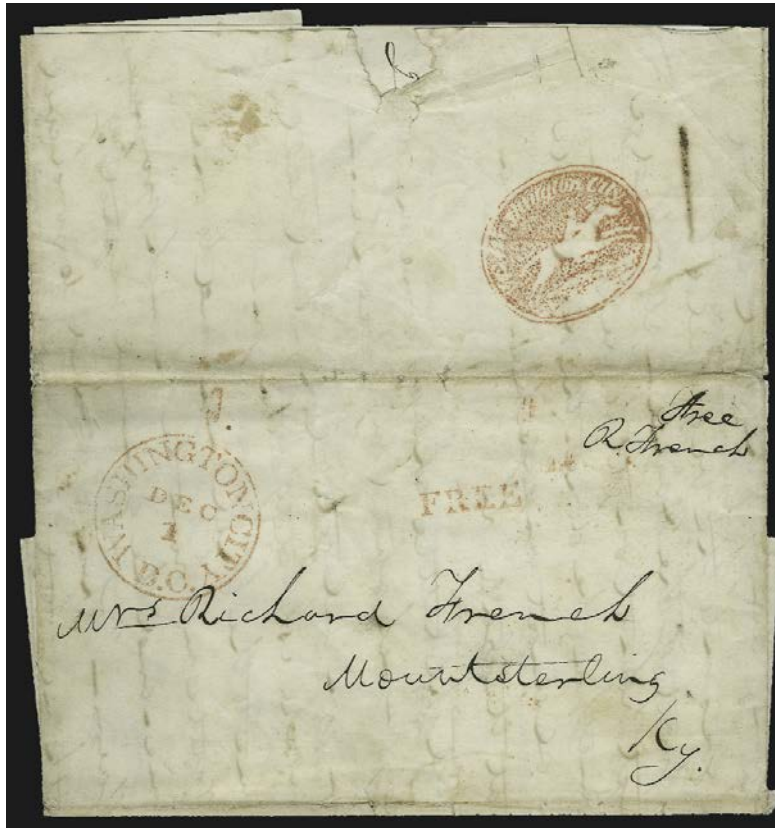 WASHINGTON CITY
Free
R French
WASHINGTON CITY. D.C.
DEC
1
FREE
Mrs Richard French
Mountsterling
Ky.